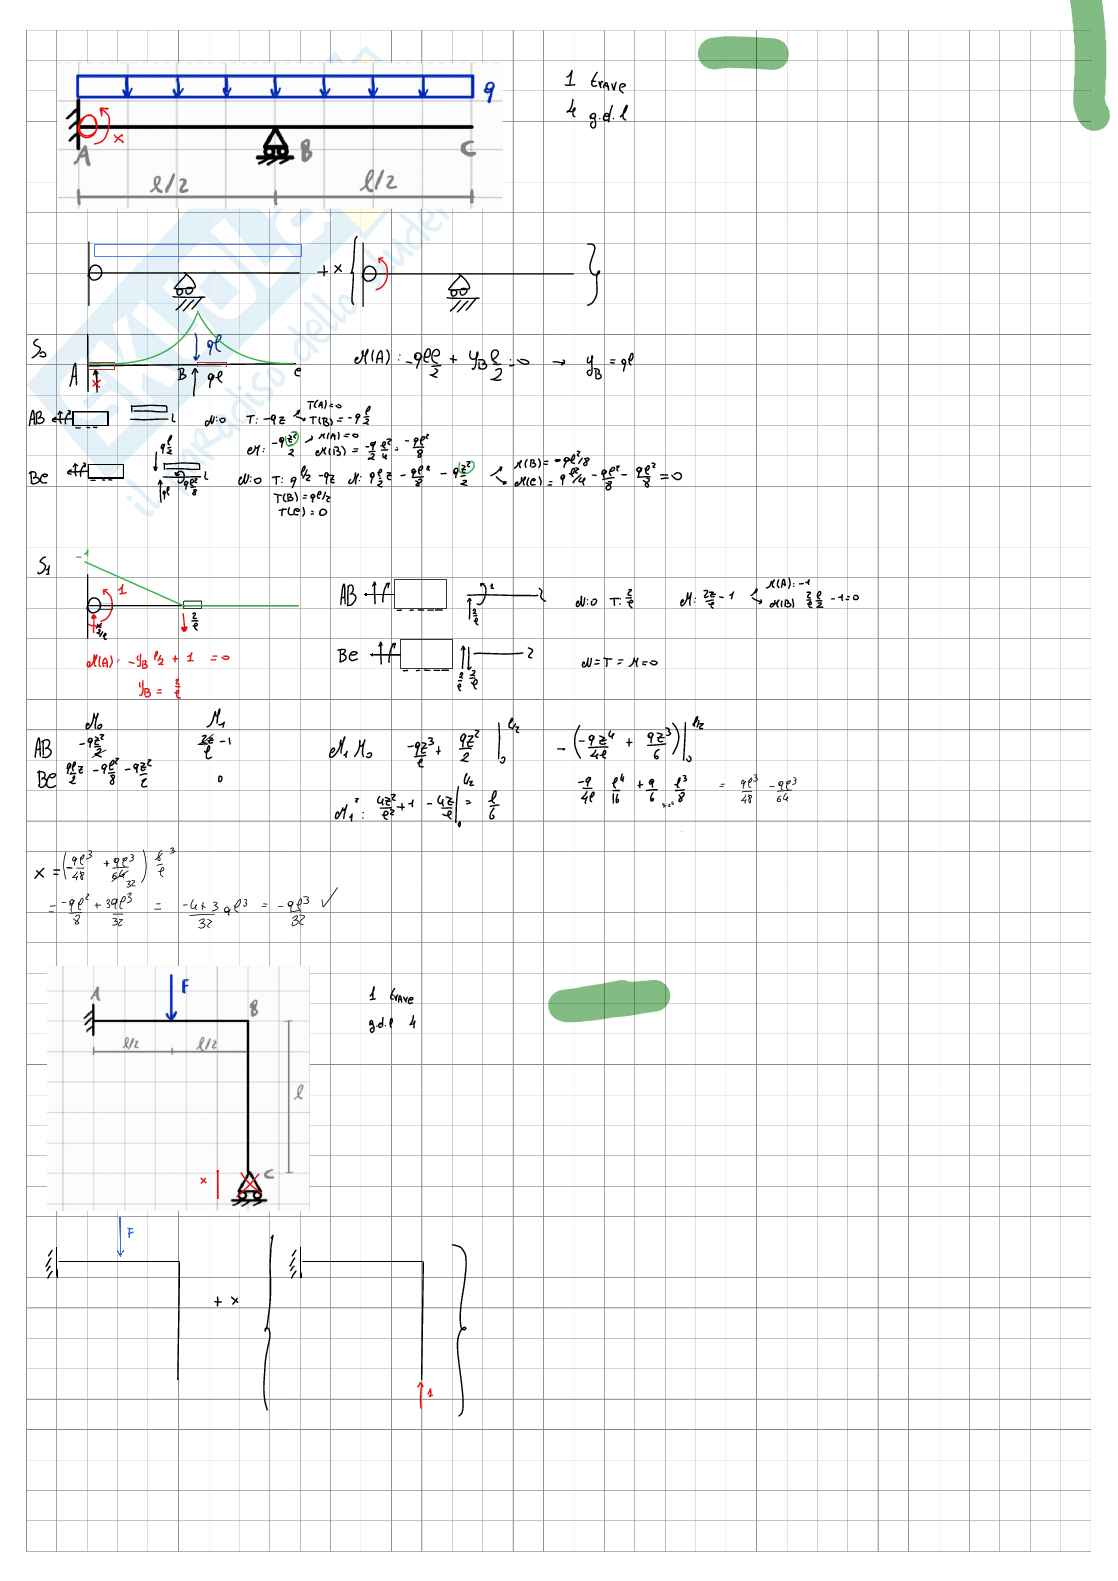 q
1 trave
4 g.d.l
x
A B C
l/2 l/2
+ x
S₀
ql
A B ql C
x
M(A): -ql l/2 + y_B l/2 = 0 → y_B = ql
AB N:0 T: -qz T(A)=0 T(B) = -q l/2
M: -qz²/2 M(A)=0 M(B) = -q/2 l²/4 = -ql²/8
BC ql/2 ql ql²/8 N:0 T: q l/2 - qz M: q l/2 z - ql²/8 - qz²/2 M(B) = -ql²/8
M(C) = q l²/4 - ql²/8 - ql²/8 = 0
T(B) = ql/2
T(C) = 0
S₁
-1
1
2/l 2/l
AB 1 2/l N:0 T: 2/l M: 2z/l - 1 M(A): -1
M(B) 2/l l/2 - 1 = 0
M(A): -y_B l/2 + 1 = 0
y_B = 2/l
BC 2/l 2/l N = T = M = 0
M₀ M₁
AB -qz²/2 2z/l - 1
BC ql/2 z - ql²/8 - qz²/2 0
M₁ M₀ -qz³/l + qz²/2 |₀ l/2 - (-qz⁴/4l + qz³/6)|₀ l/2
-q/4l l⁴/16 + q/6 l³/8 = ql³/48 - ql³/64
M₁²: 4z²/l² + 1 - 4z/l |₀ l/2 = l/6
x = (-ql³/48 + ql³/64)
= -ql²/8 + 3ql³/32 = -4+3/32 ql³ = -ql³/32 ✓
A F B
l/2 l/2
l
x C
1 trave
g.d.l 4
F
+ x
1